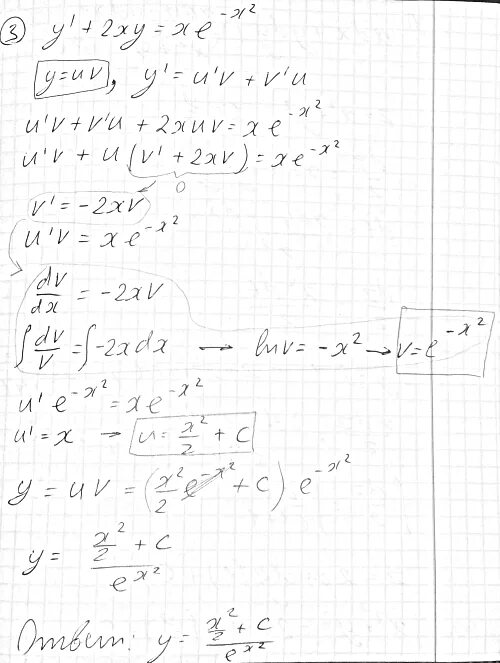 ③ y' + 2xy = xe^{-x²}
y=uv, y' = u'v + v'u
u'v + v'u + 2xuv = xe^{-x²}
u'v + u(v' + 2xv) = xe^{-x²}
0
v' = -2xv
u'v = xe^{-x²}
dv/dx = -2xv
∫dv/v = ∫-2xdx → lnv = -x² → v = e^{-x²}
u'e^{-x²} = xe^{-x²}
u' = x → u = x²/2 + C
y = uv = (x²/2 + C) e^{-x²}
y = (x²/2 + C)/e^{x²}
Ответ: y = (x²/2 + C)/e^{x²}